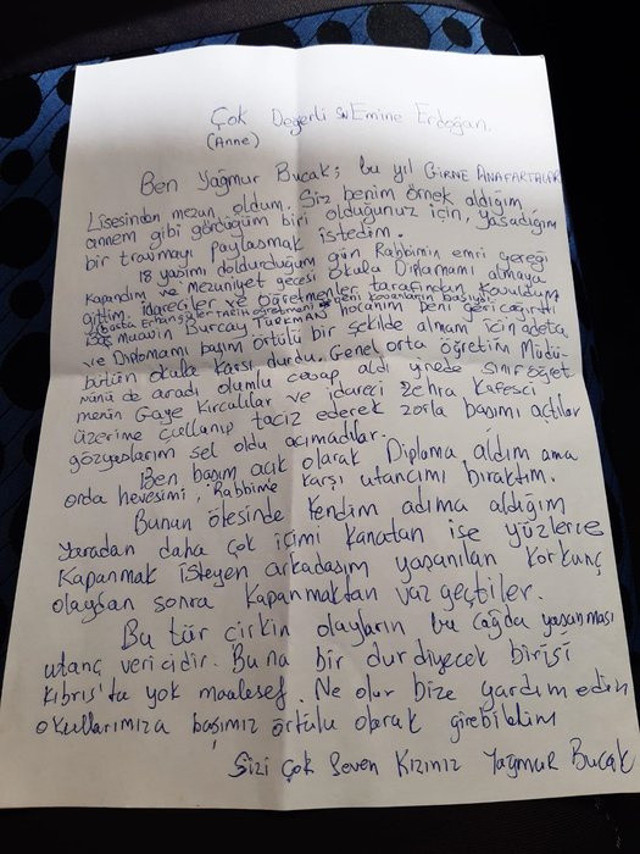 Çok Değerli Sn Emine Erdoğan.
(Anne)
Ben Yağmur Bucak; bu yıl GİRNE ANAFARTALAR
Lisesinden mezun oldum. Siz benim örnek aldığım
annem gibi gördüğüm biri olduğunuz için, yaşadığım
bir travmayı paylaşmak istedim.
18 yaşımı doldurduğum gün Rabbimin emri gereği
Kapandım ve mezuniyet gecesi okula Diplamamı almaya
gittim. İdareciler ve öğretmenler tarafından kovuldum
(Başta Erhan Güler TARİH öğretmeni geni kovanların başıydı)
Baş muavin Burcay TÜRKMAN hocanım beni geri çağırdı
ve Diplomamı başım örtülü bir şekilde almam için adeta
bütün okula karşı durdu. Genel orta öğretim Müdü-
rünü de aradı olumlu cevap aldı yinede sınıf öğret
menin Gaye Kırcalılar ve idareci Zehra Kafesci
üzerime çullanıp taciz ederek zorla başımı açtılar
gözyaşlarım sel oldu acımadılar.
Ben başım açık olarak Diploma aldım ama
orda hevesimi, Rabbime karşı utancımı bıraktım.
Bunun ötesinde kendim adıma aldığım
yaradan daha çok içimi kanatan ise yüzlerce
Kapanmak isteyen arkadaşım yaşanılan korkunç
olaydan sonra kapanmaktan vaz geçtiler.
Bu tür çirkin olayların bu çağda yaşanması
utanç vericidir. Buna bir dur diyecek birisi
Kıbrıs'ta yok maalesef. Ne olur bize yardım edin
okullarımıza başımız örtülü olarak girebilelim
Sizi Çok Seven Kızınız Yağmur Bucak